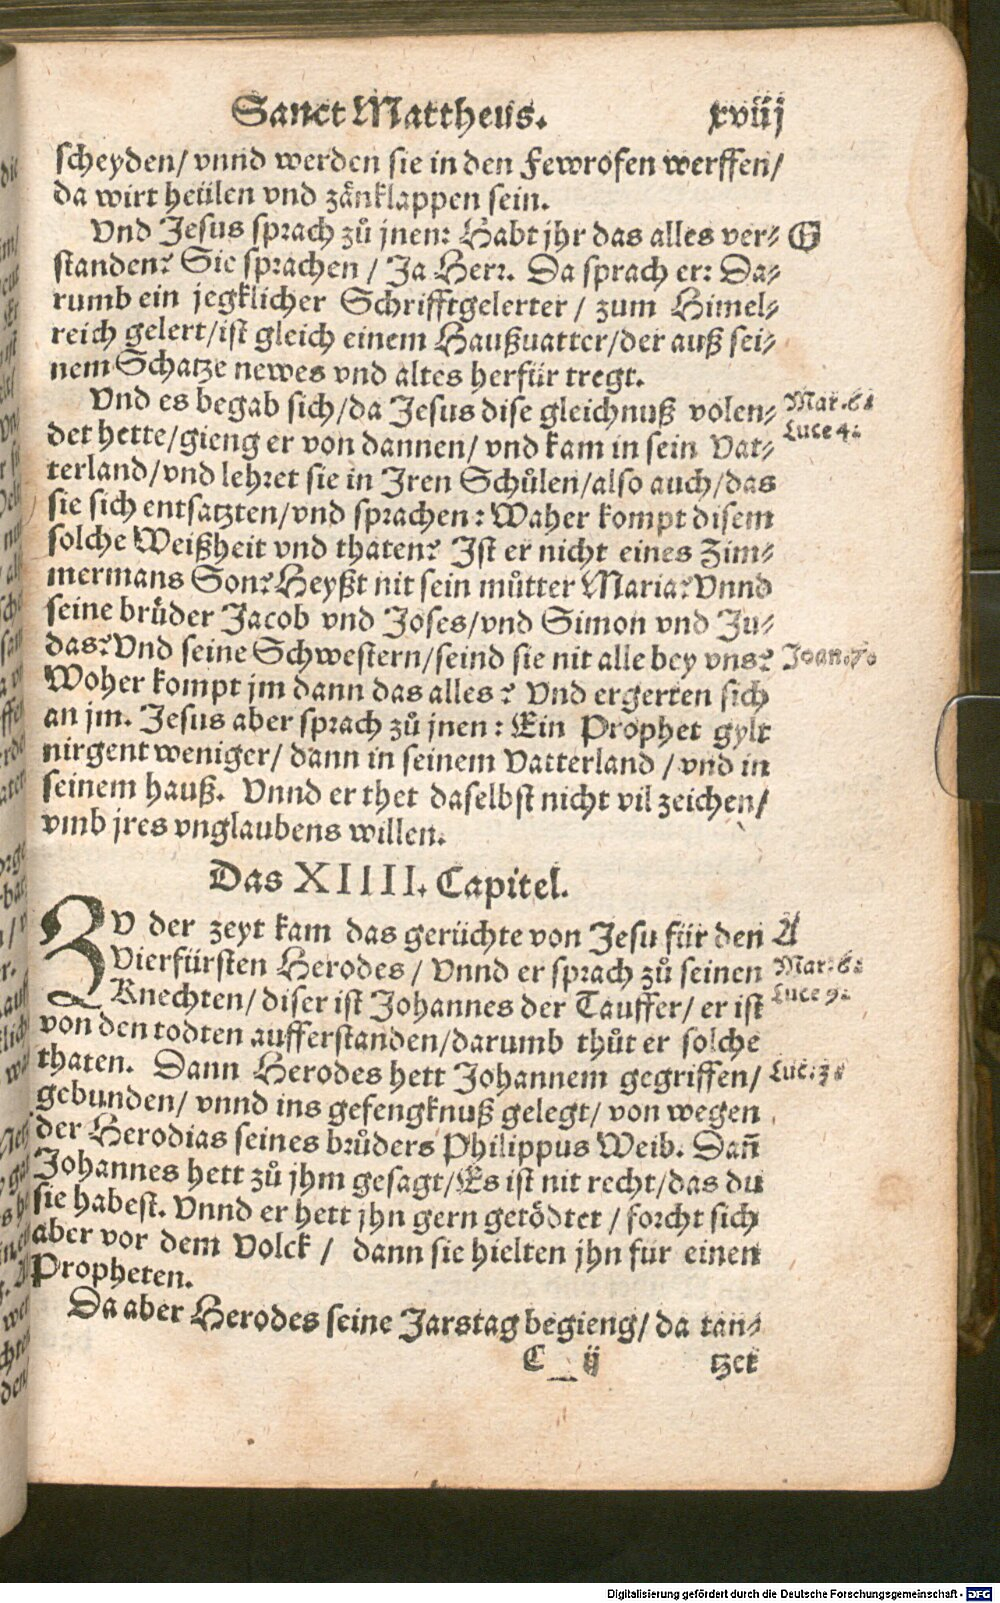 Sanct Mattheus. xviij
scheyden/ vnnd werden sie in den Fewrofen werffen/
da wirt heülen vnd zänklappen sein.
Vnd Jesus sprach zů jnen: Habt jhr das alles ver⸗ G
standen? Sie sprachen / Ja Herr. Da sprach er: Da⸗
rumb ein jegklicher Schrifftgelerter / zum Himel⸗
reich gelert/ist gleich einem Haußuatter/der auß sei⸗
nem Schatze newes vnd altes herfür tregt.
Vnd es begab sich/da Jesus dise gleichnuß volen⸗ Mar.6.
det hette/gieng er von dannen/ vnd kam in sein Vat⸗ Luce 4.
terland/vnd lehret sie in Jren Schůlen/also auch/das
sie sich entsatzten/vnd sprachen: Waher kompt disem
solche Weißheit vnd thaten? Ist er nicht eines Zim⸗
mermans Son? Heyßt nit sein můtter Maria? Vnnd
seine brůder Jacob vnd Joses/vnd Simon vnd Ju⸗
das? Vnd seine Schwestern/seind sie nit alle bey vns? Joan.7.
Woher kompt jm dann das alles? Vnd ergerten sich
an jm. Jesus aber sprach zů jnen: Ein Prophet gylt
nirgent weniger/ dann in seinem Vatterland / vnd in
seinem hauß. Vnnd er thet daselbst nicht vil zeichen/
vmb jres vnglaubens willen.
Das XIIII. Capitel.
ZV der zeyt kam das gerüchte von Jesu für den A
Vierfürsten Herodes / Vnnd er sprach zů seinen Mar. 6.
Knechten/ diser ist Johannes der Tauffer/ er ist Luce 9.
von den todten aufferstanden/darumb thůt er solche
thaten. Dann Herodes hett Johannem gegriffen/ Luc. 3.
gebunden/ vnnd ins gefengknuß gelegt/ von wegen
der Herodias seines brůders Philippus Weib. Dañ
Johannes hett zů jhm gesagt/Es ist nit recht/das du
sie habest. Vnnd er hett jhn gern getödtet / forcht sich
aber vor dem Volck / dann sie hielten jhn für einen
Propheten.
Da aber Herodes seine Jarstag begieng/ da tan⸗
C ij tzet
Digitalisierung gefördert durch die Deutsche Forschungsgemeinschaft - DFG